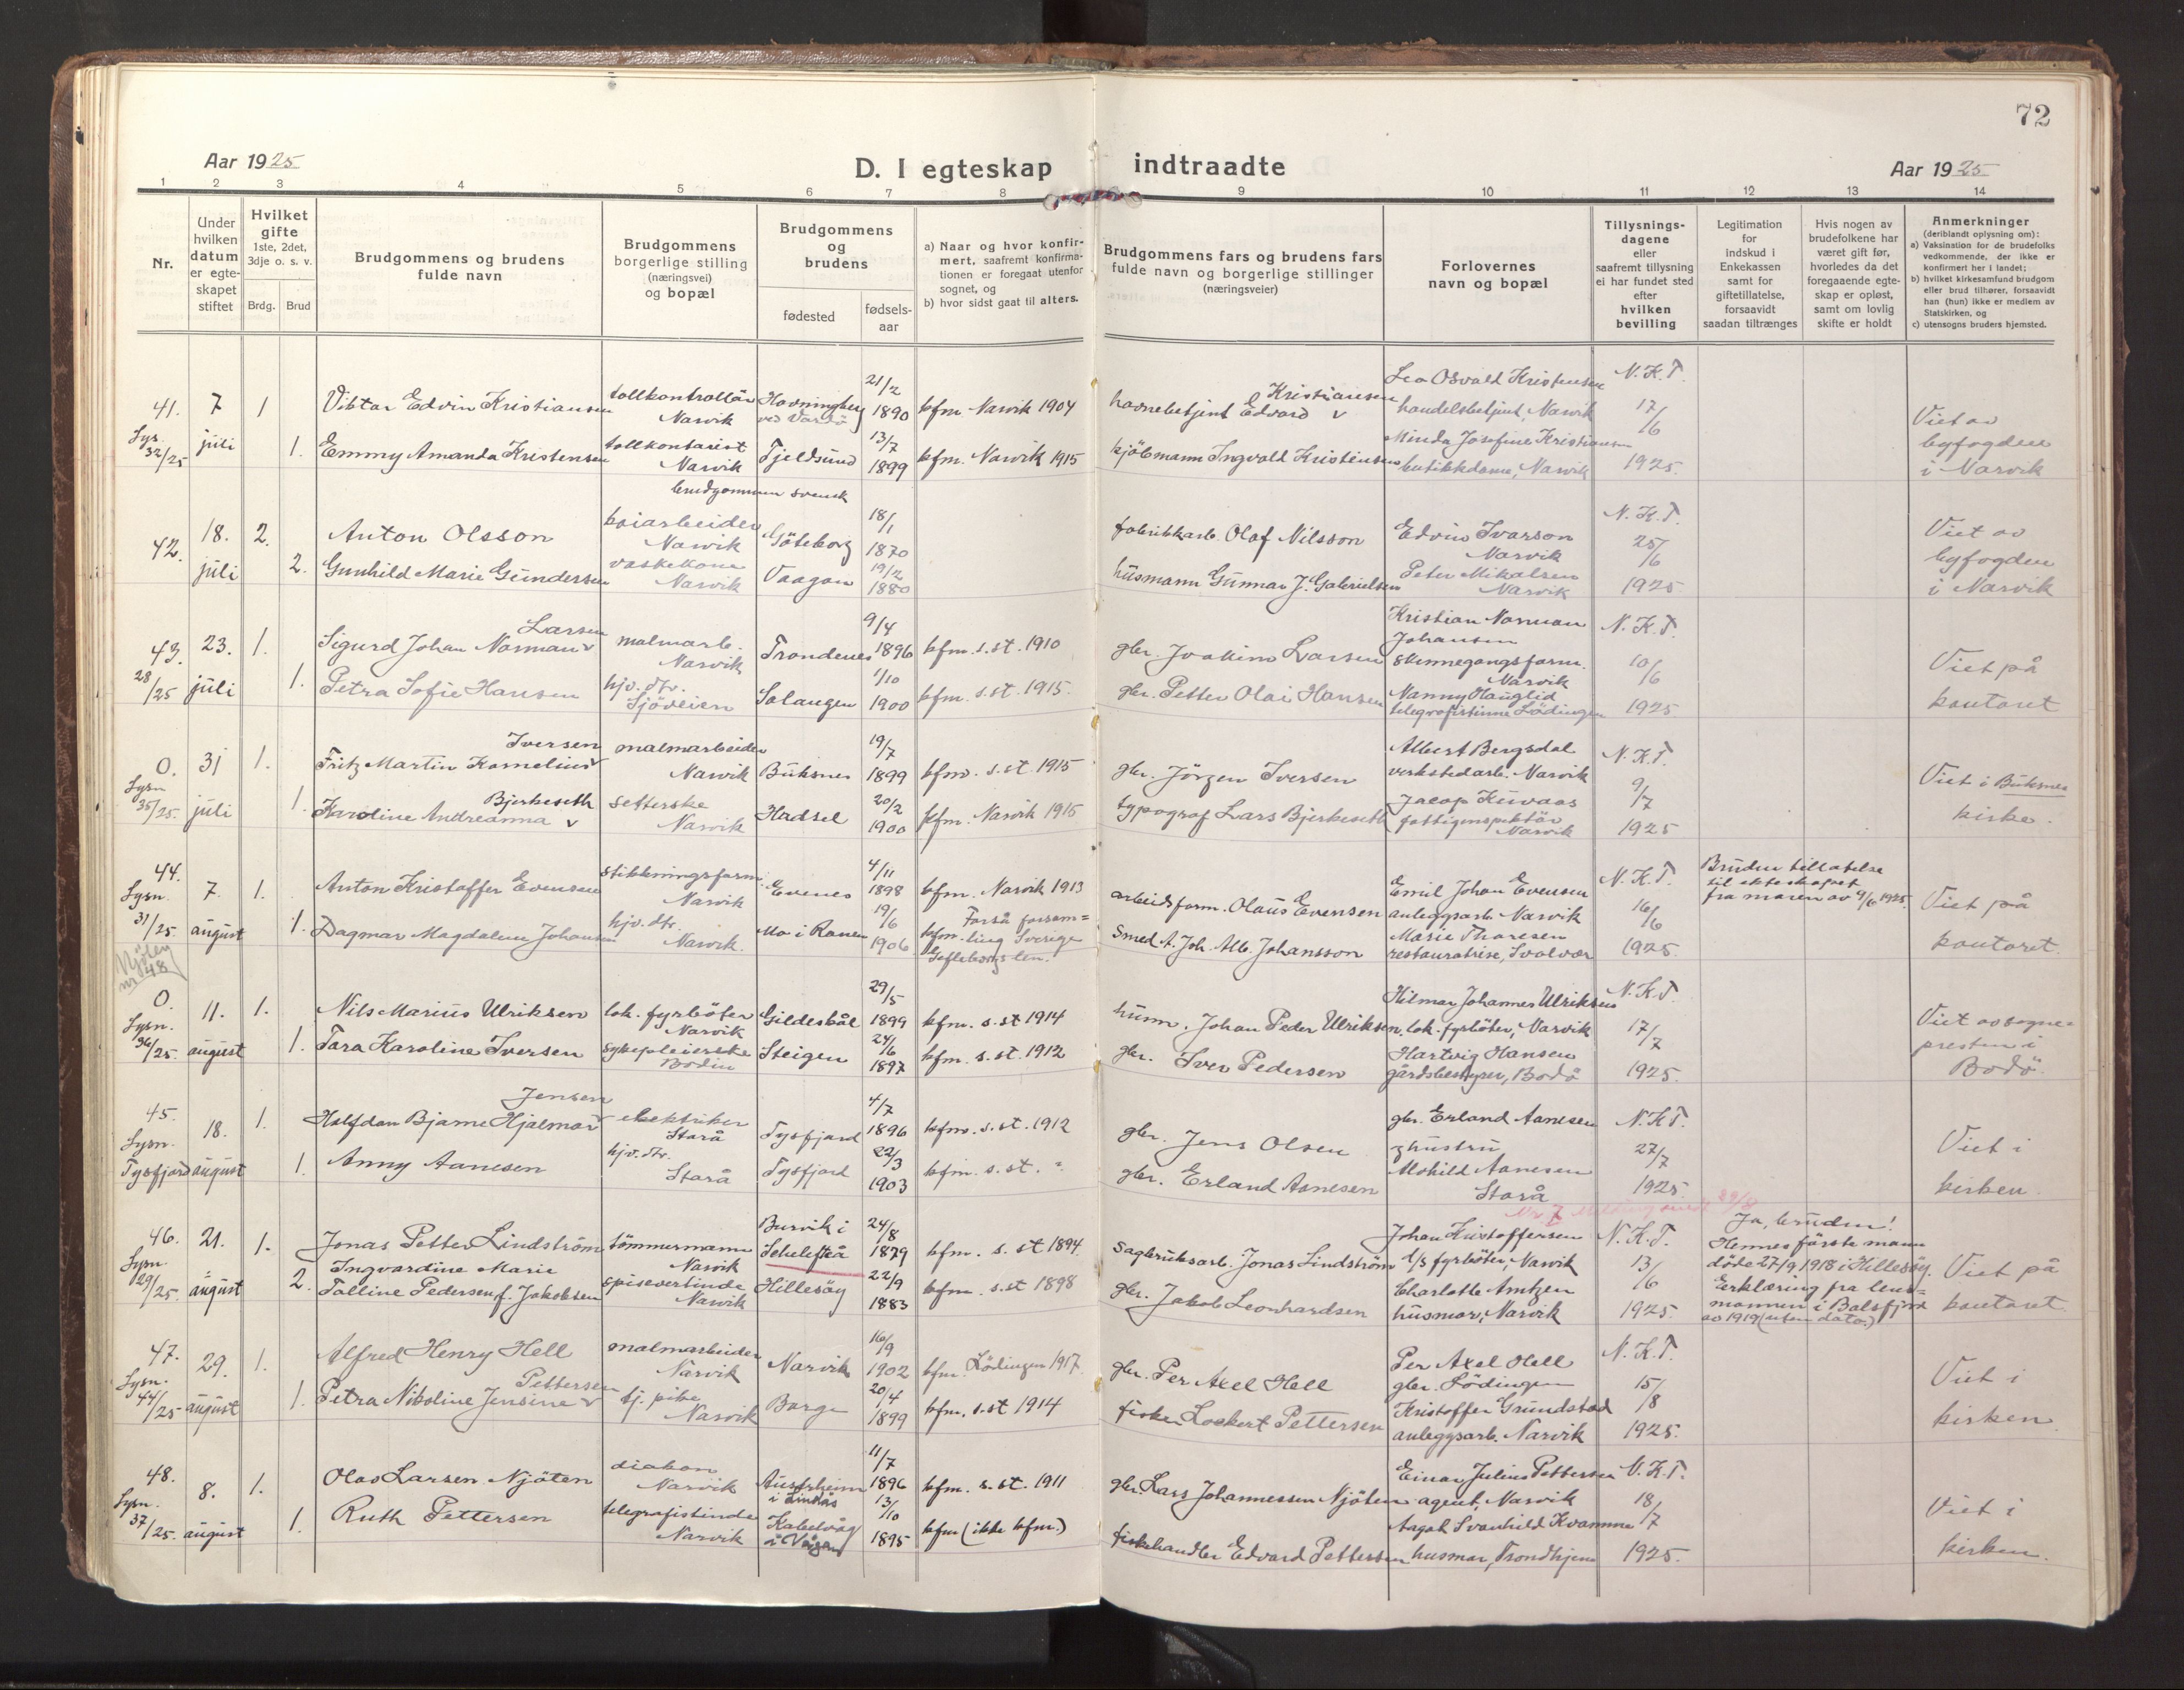 72
Aar 1925
D. I egteskap indtraadte
Aar 1925
1 2 3 4 5 6 7 8 9 10 11 12 13 14
Nr.
Under
hvilken
datum
er egte-
skapet
stiftet
Hvilket
gifte
1ste, 2det,
3dje o. s. v.
Brdg. Brud
Brudgommens og brudens
fulde navn
Brudgommens
borgerlige stilling
(næringsvei)
og bopæl
Brudgommens
og
brudens
fødested
fødsels-
aar
a) Naar og hvor konfir-
mert, saafremt konfirma-
tionen er foregaat utenfor
sognet, og
b) hvor sidst gaat til alters.
Brudgommens fars og brudens fars
fulde navn og borgerlige stillinger
(næringsveier)
Forlovernes
navn og bopæl
Tillysnings-
dagene
eller
saafremt tillysning
ei har fundet sted
efter
hvilken
bevilling
Legitimation
for
indskud i
Enkekassen
samt for
giftetillatelse,
forsaavidt
saadan tiltrænges
Hvis nogen av
brudefolkene har
været gift før,
hvorledes da det
foregaaende egte-
skap er opløst,
samt om lovlig
skifte er holdt
Anmerkninger
(deriblandt oplysning om):
a) Vaksination for de brudefolks
vedkommende, der ikke er
konfirmert her i landet;
b) hvilket kirkesamfund brudgom
eller brud tilhører, forsaavidt
han (hun) ikke er medlem av
Statskirken, og
c) utensogns bruders hjemsted.
41.
Lys.
32/25
7
juli
1
1.
Viktor Edvin Kristiansen
Emmy Amanda Kristensen
tollkontrollør
Narvik
tollkontorist
Narvik
Havningberg
ved Vardö
Fjeldsund
21/2
1890
13/7
1899
kfm. Narvik 1904
kfm. Narvik 1915
Kristiansen
havnebetjent Edvard v
kjöbmann Ingvald Kristensen
Leo Osvald Kristensen
handelsbetjent, Narvik
Minda Josefine Kristiansen
butikkdame, Narvik
N.K.T.
17/6
1925.
Viet av
byfogden
i Narvik
42.
18.
juli
2.
2.
Anton Olsson
Gunhild Marie Gundersen
brudgommen svensk
kaiarbeider
Narvik
vaskekone
Narvik
Göteborg
Vaagan
18/1
1870
19/2
1880
fabrikkarb. Olaf Nilsson
husmann Gunnar J. Gabrielsen
Edvin Ivarson
Narvik
Peter Mikalsen
Narvik
N.K.T.
25/6
1925
Viet av
byfogden
i Narvik
43.
28/25
23.
juli
1.
1.
Larsen
Sigurd Johan Norman v
Petra Sofie Hansen
malmarb.
Narvik
hjv. dtr.
Sjöveien
Trondenes
Salangen
9/4
1896
1/10
1900
kfm. s. st. 1910
kfm. s. st. 1915.
gbr. Joakim Larsen
gbr. Petter Olai Hansen
Kristian Norman
Johansen
skinnegangsform.
Narvik
Nanny Hauglid
telegrafistinne Lödingen
N.K.T.
10/6
1925
Viet på
kontoret
0.
Lysn
35/25.
31
juli
1.
1.
Iversen
Fritz Martin Kornelius v
Bjerkeseth
Karoline Andreanna v
malmarbeider
Narvik
setterske
Narvik
Buksnes
Hadsel
19/7
1899
20/2
1900
kfm. s. st. 1915
kfm. Narvik 1915
gbr. Jörgen Iversen
typograf Lars Bjerkeseth
Albert Bergsdal
verkstedarb. Narvik
fattiginspektör
Narvik
N.K.T.
9/7
1925
Viet i Buksnes
kirke.
44.
Lysn.
31/25.
7.
august
1.
1.
Anton Kristoffer Evensen
Dagmar Magdalene Johansen
stikkningsform.
Narvik
hjv. dtr.
Narvik.
Evenes
Mo i Ranen
4/11
1898
19/6
1906
kfm. Narvik 1913
Forså forsam=
kfm. ling Sverige
Gefleborgs len.
arbeidsform. Olaus Evensen
Smed A. Joh. Alb. Johansson
Emil Johan Evensen
anleggsarb. Narvik
Marie Thoresen
restauratrise, Svolvær
N.K.T.
16/6
1925
Bruden tillatelse
til ekteskapet
fra moren av 9/6 1925.
Viet på
kontoret.
nr 48
0.
Lysn.
36/25.
11.
august
1.
1.
Nils Marius Ulriksen
Tara Karoline Iversen
lok. fyrböter
Narvik
sykepleierske
Bodin
Gildeskål
Steigen
29/5
1899
24/6
1897
kfm. s. st 1914
kfm. s. st. 1912
husm. Johan Peder Ulriksen
gbr. Iver Pedersen
Hilmar Johannes Ulriksen
lok. fyrböter, Narvik
Hartvig Hansen
gårdsbestyrer, Bodö
N.K.T.
17/7
1925.
Viet av sogne=
presten i
Bodö.
45.
Lysn.
Tysfjord
18.
august
1.
1.
Jensen
Halfdan Bjarne Hjalmar v
Anny Aanesen
elektriker
Storå
hjv. dtr.
Storå
Tysfjord
Tysfjord
4/7
1896
22/3
1903
kfm. s. st. 1912
kfm. s. st. "
gbr. Jens Olsen
gbr. Erland Aanesen
gbr. Erland Aanesen
hustru
Aanesen
Storå
N.K.T.
27/7
1925.
Viet i
kirken.
46.
Lysn.
29/25.
21.
august
1.
2.
Jonas Petter Lindström
Ingvardine Marie
Talline Pedersen f. Jakobsen
tömmermann
Narvik
spisevertinde
Narvik
Burvik i
Skellefteå
Hillesöy
24/8
1879
22/9
1883
kfm. s. st 1894.
kfm. s. st 1898
sagbruksarb. Jonas Lindström
gbr. Jakob Leonhardsen
Johan Kristoffersen
d/s fyrböter, Narvik
Charlotte Arntzen
husmor, Narvik
N.K.T.
13/6
1925.
Ja, bruden!
Hennes förste mann
döde 27/9 1918 i Hillesöy.
Erklæring fra lens=
mannen i Balsfjord
av 1919 (uten dato.)
Viet på
kontoret.
47.
Lysn.
44/25
29.
august
1.
1.
Alfred Henry Hell
Pettersen
Petra Nikoline Jensine v
malmarbeider
Narvik
tj. pike
Narvik
Narvik
Borge
16/9
1902
20/4
1899
kfm. Lödingen 1917.
kfm. s. st 1914
gbr. Per Axel Hell
fisker Lockert Pettersen
Per Axel Hell
gbr. Lödingen
Kristoffer Grundstad
anleggsarb. Narvik
N.K.T.
15/8
1925.
Viet i
kirken.
48.
Lysn.
37/25.
8.
august
1.
1.
Olav Larsen Njöten
Ruth Pettersen
diakon
Narvik
telegrafistinde
Narvik
Austrheim
i Lindås
Kabelvåg
i Vågan
11/7
1896
13/10
1895
kfm. s. st. 1911
kfm (ikke kfm.)
gbr. Lars Johannessen Njöten
fiskehandler Edvard Pettersen
Einar Julius Pettersen
agent, Narvik
Aagot Svanhild Kvamme
husmor, Trondhjem
N.K.T.
18/7
1925.
Viet i
kirken.